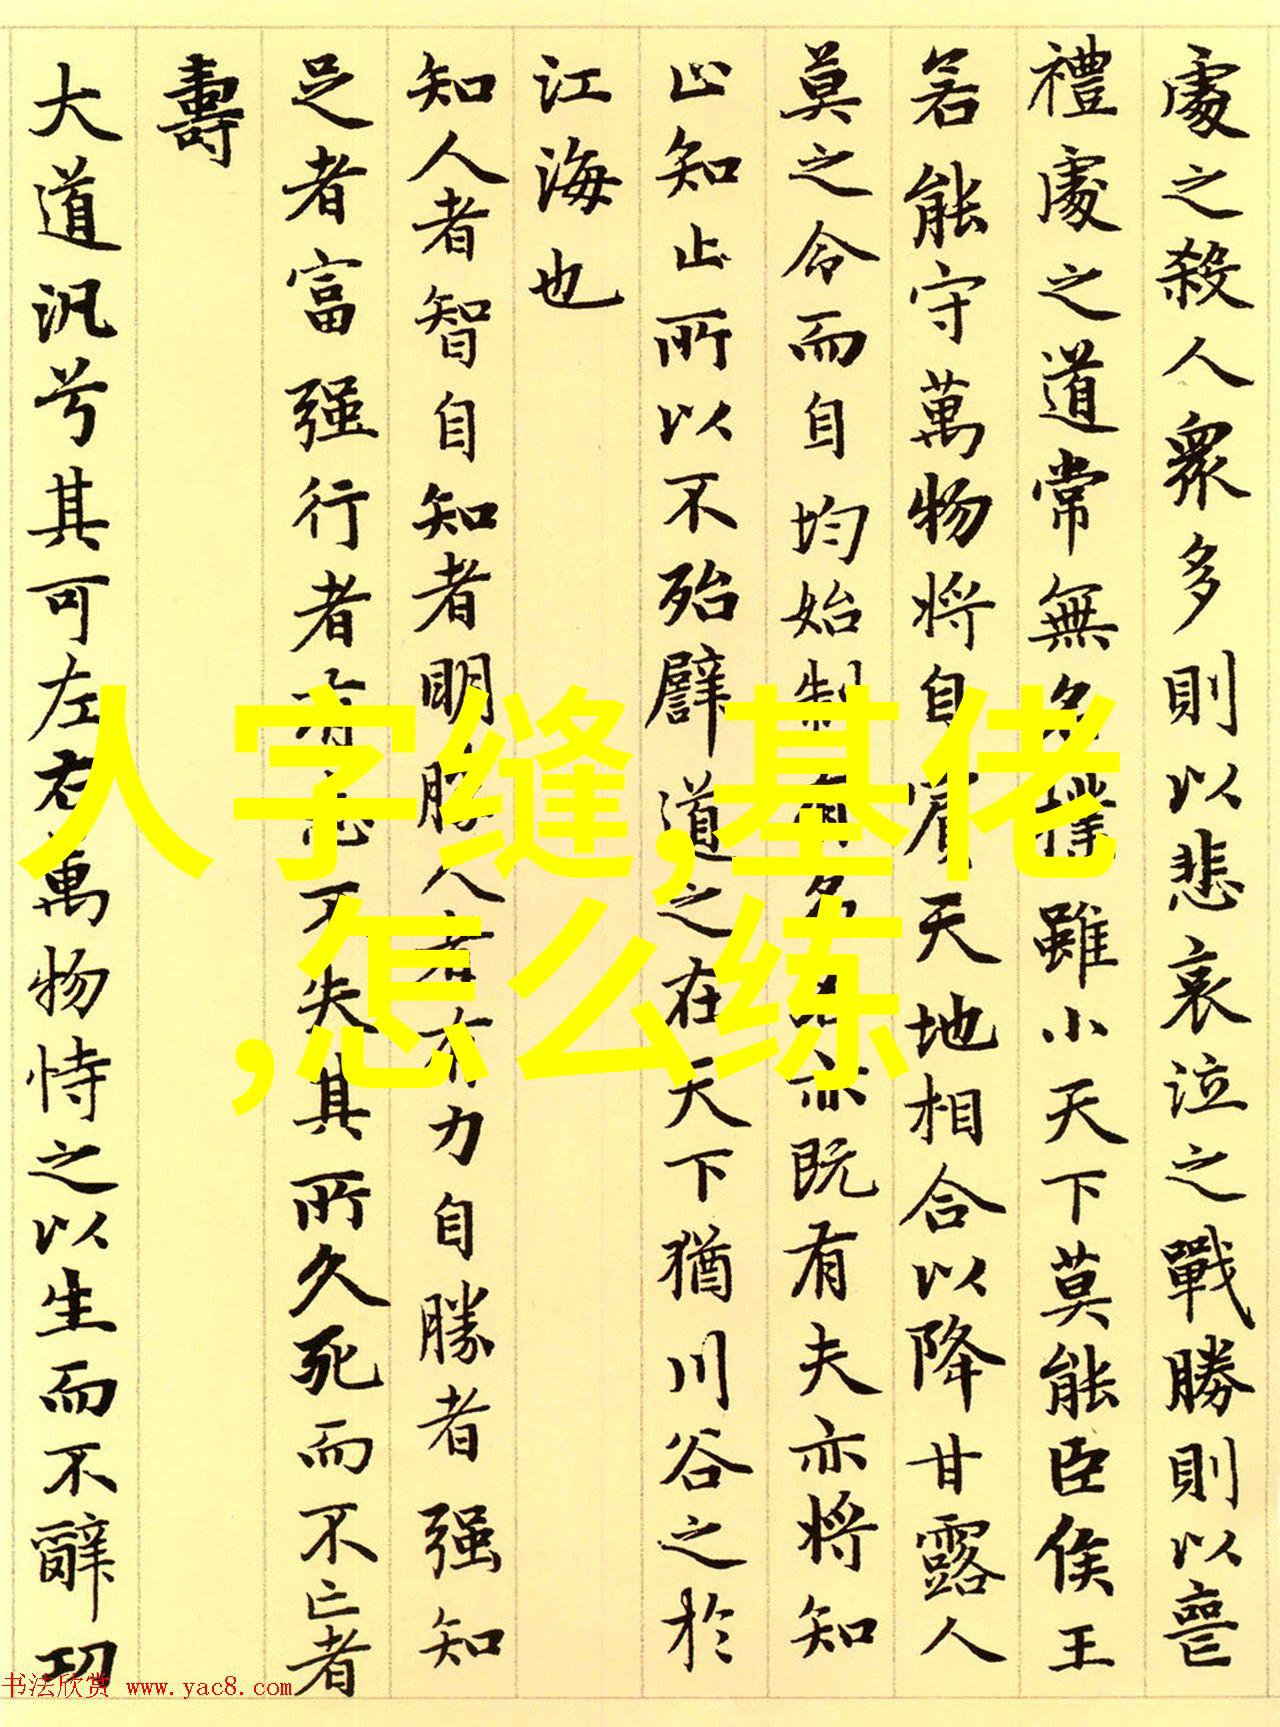 處之殺人衆多則以悲哀泣之戰勝則以喪
禮處之道常無名樸雖小天下莫能臣侯王
若能守萬物将自賓天地相合以降甘露人
莫之令而自均始制有名名亦既有夫亦将知
止知止所以不殆譬道之在天下猶川谷之於
江海也
知人者智自知者明勝人者有力自勝者强知
足者富强行者有志不失其所久死而不亡者
壽
大道汎兮其可左右萬物恃之以生而不辭功
人字缝,基佬
,怎么练
书法欣赏 www.yac8.com